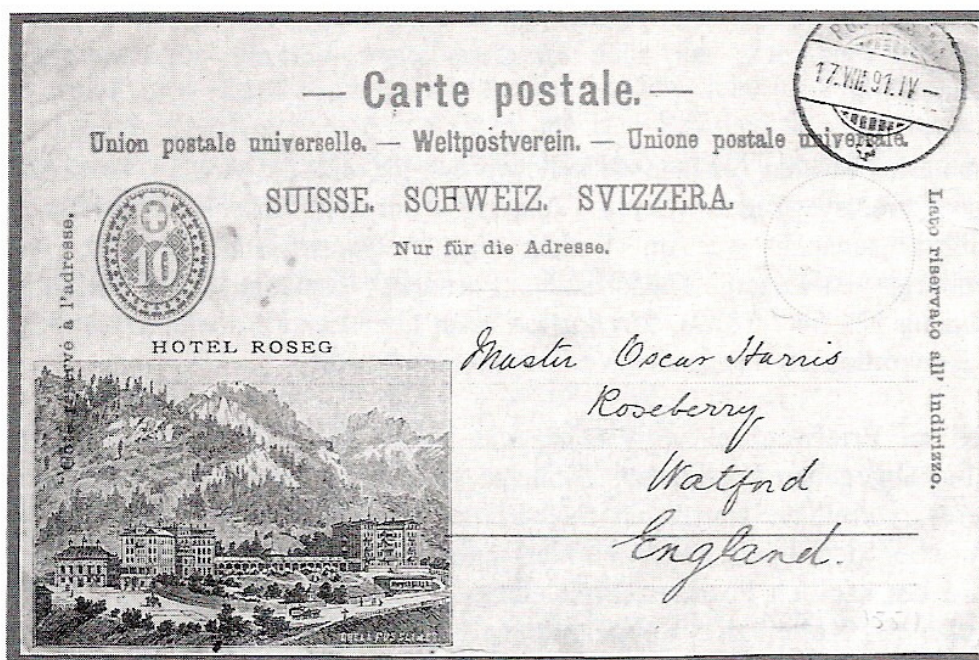 — Carte postale. —
Union postale universelle. — Weltpostverein. — Unione postale universale.
SUISSE. SCHWEIZ. SVIZZERA.
Nur für die Adresse.
17.VIII.91.IV—
10
réservé à l'adresse.
Lato riservato all' indirizzo.
HOTEL ROSEG
Master Oscar Harris
Roseberry
Watford
England.